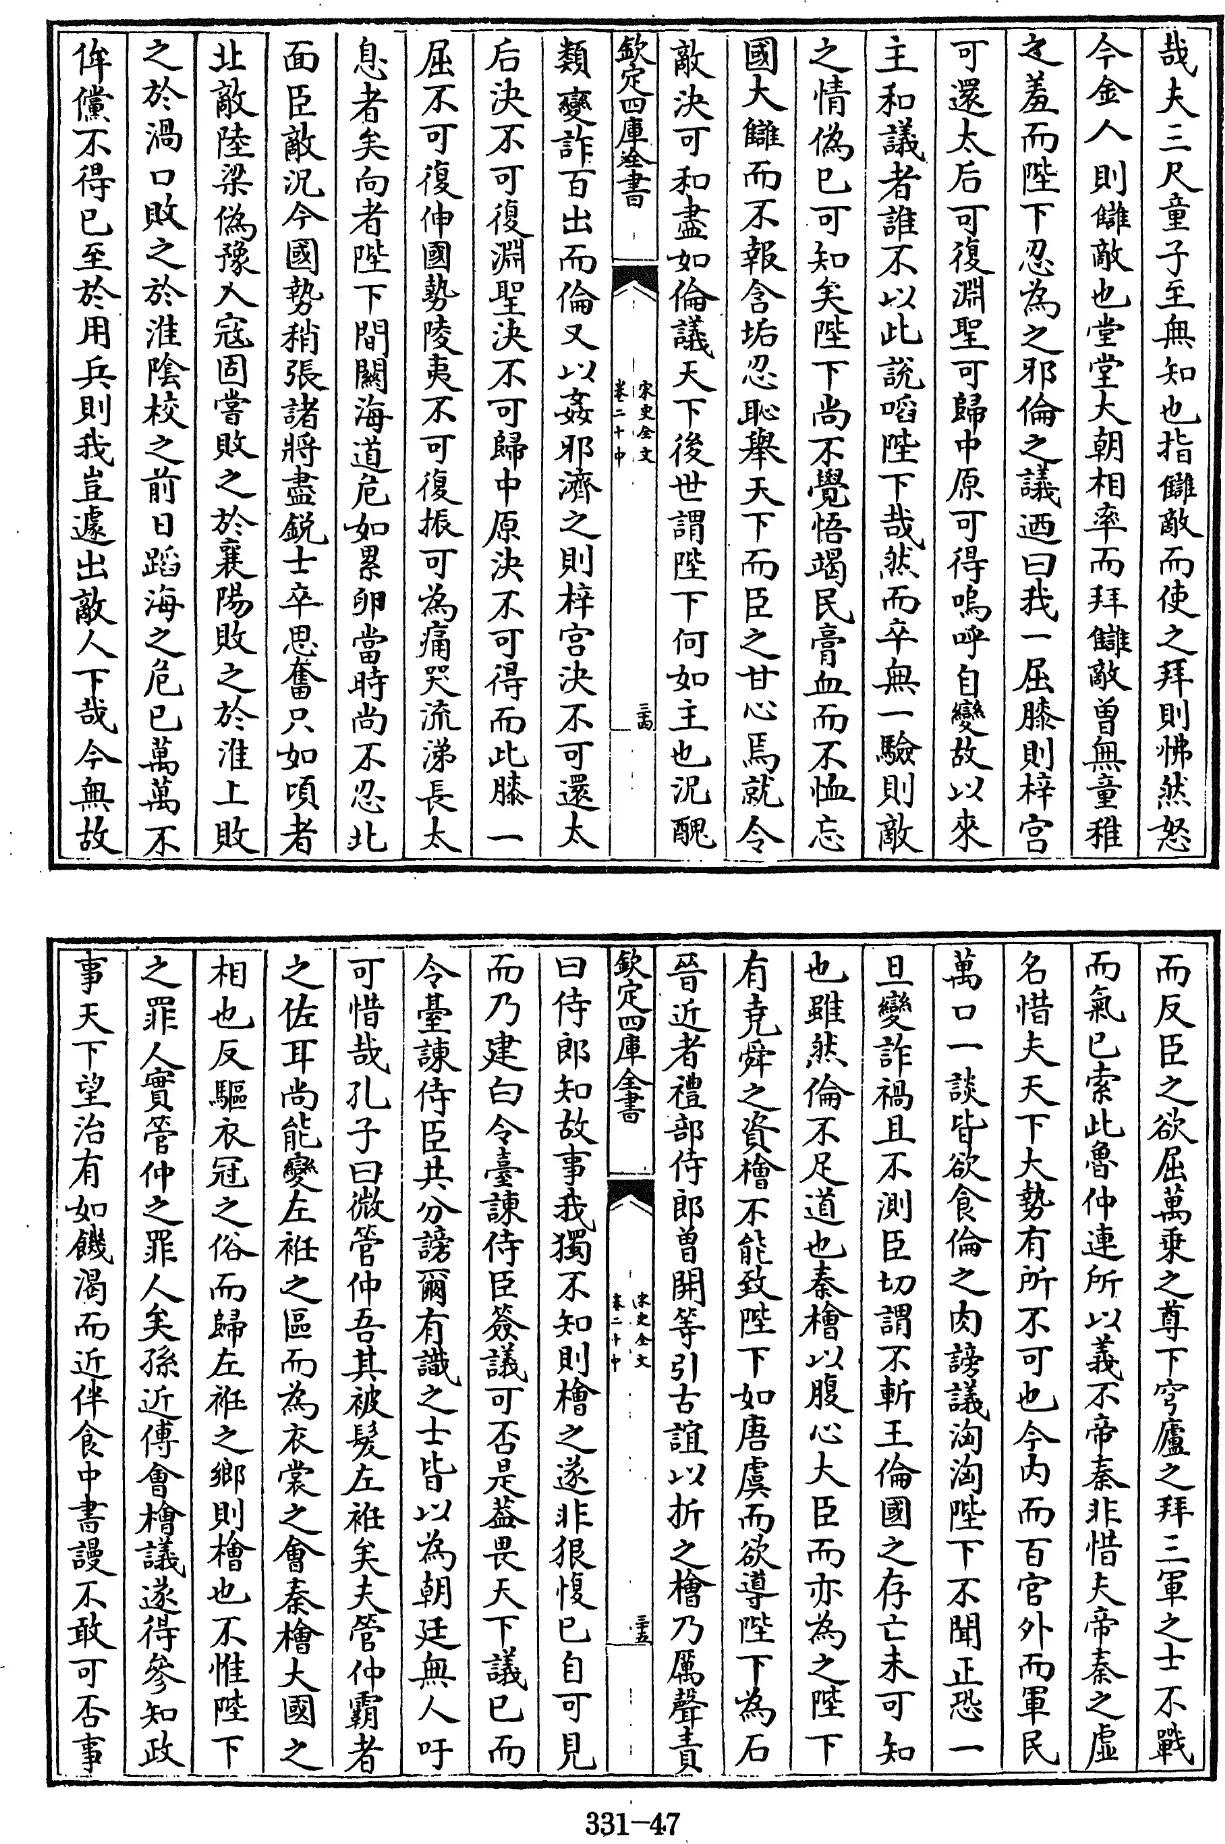 哉夫三尺童子至無知也指讎敵而使之拜則怫然怒
今金人則讎敵也堂堂大朝相率而拜讎敵曽無童稚
之羞而陛下忍為之邪倫之議迺曰我一屈膝則梓宮
可還太后可復淵聖可歸中原可得嗚呼自變故以來
主和議者誰不以此説啗陛下哉然而卒無一驗則敵
之情偽已可知矣陛下尚不覺悟竭民膏血而不恤忘
國大讎而不報含垢忍恥舉天下而臣之甘心焉就令
敵決可和盡如倫議天下後世謂陛下何如主也況醜
欽定四庫全書
宋史全文
卷二十中
三十四
類變詐百出而倫又以姦邪濟之則梓宮決不可還太
后決不可復淵聖決不可歸中原決不可得而此膝一
屈不可復伸國勢陵夷不可復振可為痛哭流涕長太
息者矣向者陛下間關海道危如累卵當時尚不忍北
面臣敵況今國勢稍張諸將盡鋭士卒思奮只如頃者
北敵陸梁偽豫入寇固嘗敗之於襄陽敗之於淮上敗
之於渦口敗之於淮陰校之前日蹈海之危已萬萬不
侔儻不得已至於用兵則我豈遽出敵人下哉今無故
而反臣之欲屈萬乗之尊下穹廬之拜三軍之士不戰
而氣已索此魯仲連所以義不帝秦非惜夫帝秦之虛
名惜夫天下大勢有所不可也今内而百官外而軍民
萬口一談皆欲食倫之肉謗議洶洶陛下不聞正恐一
旦變詐禍且不測臣切謂不斬王倫國之存亡未可知
也雖然倫不足道也秦檜以腹心大臣而亦為之陛下
有堯舜之資檜不能致陛下如唐虞而欲導陛下為石
晉近者禮部侍郎曽開等引古誼以折之檜乃厲聲責
欽定四庫全書
宋史全文
卷二十中
三十五
曰侍郎知故事我獨不知則檜之遂非狠愎已自可見
而乃建白令臺諫侍臣僉議可否是葢畏天下議已而
令臺諫侍臣共分謗爾有識之士皆以為朝廷無人吁
可惜哉孔子曰微管仲吾其被髮左袵矣夫管仲霸者
之佐耳尚能變左袵之區而為衣裳之會秦檜大國之
相也反驅衣冠之俗而歸左袵之鄉則檜也不惟陛下
之罪人實管仲之罪人矣孫近傅會檜議遂得參知政
事天下望治有如饑渴而近伴食中書謾不敢可否事
331-47